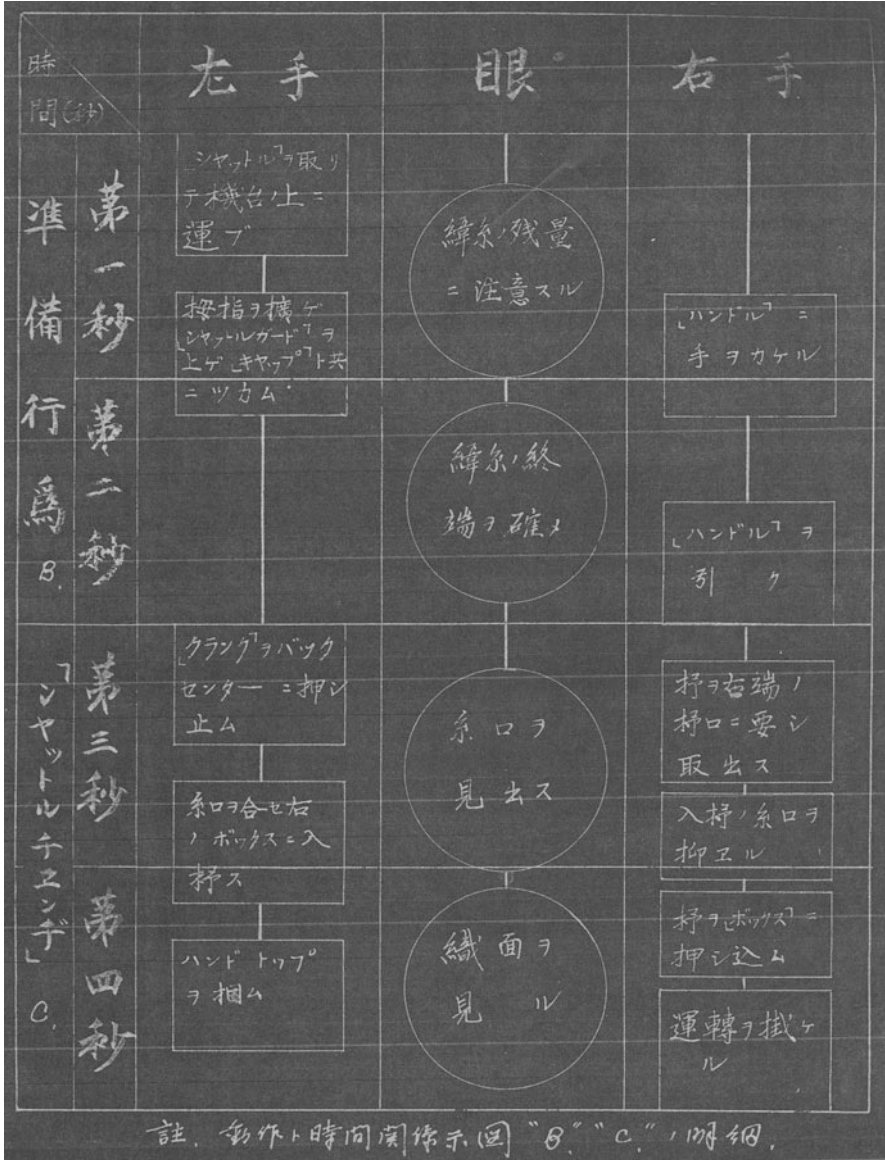 時間(秒)
左手
眼
右手
準備行爲 B.
「シャットルチエンヂ」 C.
第一秒
第二秒
第三秒
第四秒
「シャットル」ヲ取リ
テ機台ノ上ニ
運ブ
拇指ヲ擴ゲ
「シャットルガード」ヲ
上ゲ「キャップ」ト共
ニツカム
「クランク」ヲバック
センターニ押シ
止ム
糸口ヲ合セ右
ノボックスニ入
杼ス
ハンドトップ
ヲ掴ム
緯糸ノ残量
ニ注意スル
緯糸ノ終
端ヲ確メ
糸口ヲ
見出ス
織面ヲ
見ル
「ハンドル」ニ
手ヲカケル
「ハンドル」ヲ
引ク
杼ヲ右端ノ
杼口ニ要シ
取出ス
入杼ノ糸口ヲ
抑エル
杼ヲ「ボックス」ニ
押シ込ム
運轉ヲ掛ケ
ル
註. 動作ト時間関係示図 "B." "C." ノ明細.